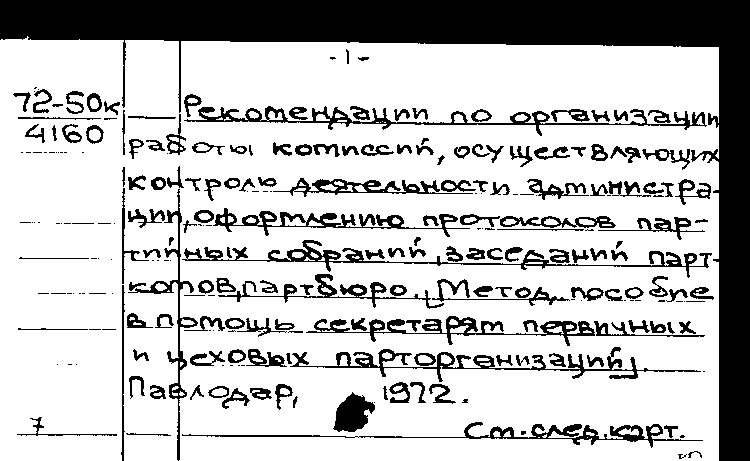 -1-
72-50к
4160
Рекомендации по организации
работы комиссий, осуществляющих
контроль деятельности администра-
ции, оформлению протоколов пар-
тийных собраний, заседаний парт-
комов, партбюро. [Метод. пособие
в помощь секретарям первичных
и цеховых парторганизаций].
Павлодар, 1972.
7
См. след. карт.